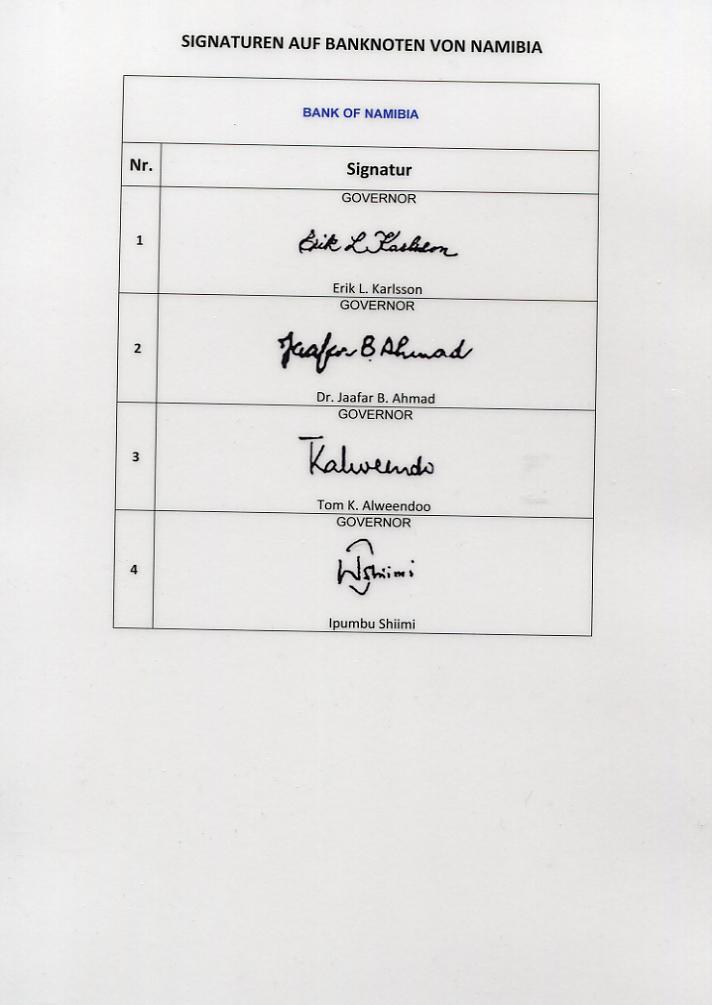 SIGNATUREN AUF BANKNOTEN VON NAMIBIA
BANK OF NAMIBIA
Nr. Signatur
GOVERNOR
1
Erik L Karlsson
Erik L. Karlsson
GOVERNOR
2
Jaafar B Ahmad
Dr. Jaafar B. Ahmad
GOVERNOR
3
TKalweendo
Tom K. Alweendoo
GOVERNOR
4
WShiimi
Ipumbu Shiimi